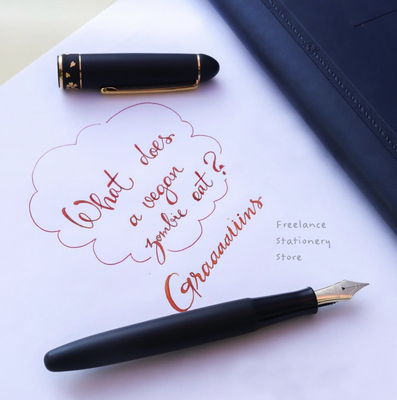 What does
a vegan
zombie eat?
Graaaatiins
Freelance
Stationery
Store